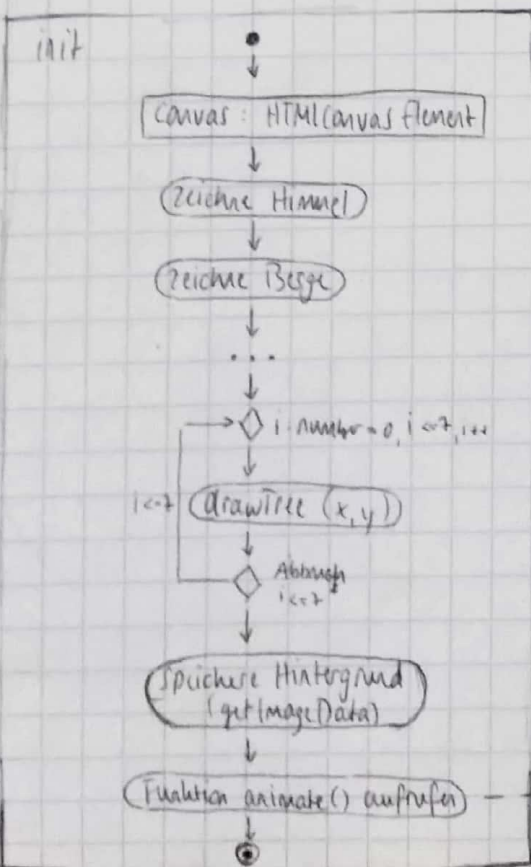 init
canvas : HTMLCanvasElement
zeichne Himmel
zeichne Berge
...
i: number = 0, i <= 7, i++
i <= 7
drawTree (x, y)
Abbruch
i <= 7
Speichere Hintergrund
(getImageData)
Funktion animate() aufrufen